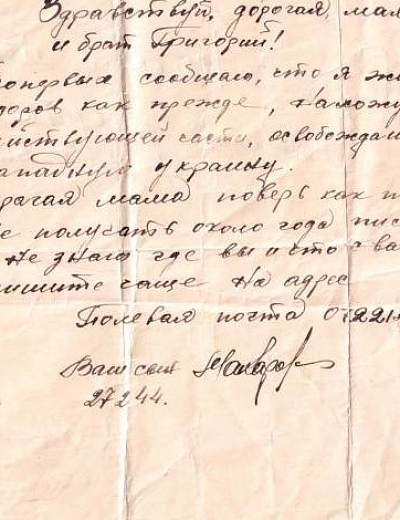 Здравствуй, дорогая, мам
и брат Григорий!
опервых сообщаю, что я жи
доров как прежде, нахожу
йствующей части, освобождаю
ападную украину.
рогая мама поверь как т
е получать около года пис
не знаю где вы и что с ва
ишите чаще на адрес
Полевая почта 0221
Ваш сын Макаров
27 2 44.